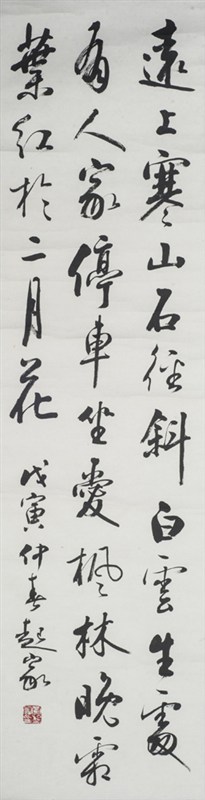 遠上寒山石徑斜白雲生處
有人家停車坐愛楓林晚霜
葉紅於二月花
戊寅仲春起家